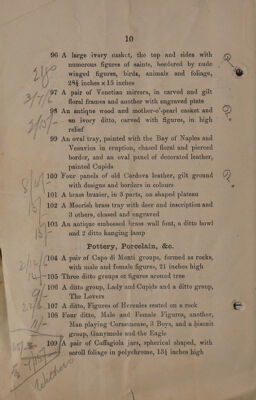 10
96 A large ivory casket, the top and sides with
numerous figures of saints, bordered by nude
winged figures, birds, animals and foliage,
28½ inches x 15 inches
97 A pair of Venetian mirrors, in carved and gilt
floral frames and another with engraved plate
98 An antique wood and mother-o'-pearl casket and
an ivory ditto, carved with figures, in high
relief
99 An oval tray, painted with the Bay of Naples and
Vesuvius in eruption, chased floral and pierced
border, and an oval panel of decorated leather,
painted Cupids
100 Four panels of old Cordova leather, gilt ground
with designs and borders in colours
101 A brass brazier, in 3 parts, on shaped plateau
102 A Moorish brass tray with deer and inscription and
3 others, chased and engraved
103 An antique embossed brass wall font, a ditto bowl
and 2 ditto hanging lamp
Pottery, Porcelain, &c.
104 A pair of Capo di Monti groups, formed as rocks,
with male and female figures, 21 inches high
105 Three ditto groups or figures around tree
106 A ditto group, Lady and Cupids and a ditto group,
The Lovers
107 A ditto, Figures of Hercules seated on a rock
108 Four ditto, Male and Female Figures, another,
Man playing Cornemuse, 3 Boys, and a biscuit
group, Ganymede and the Eagle
109 A pair of Caffagiola jars, spherical shaped, with
scroll foliage in polychrome, 13½ inches high